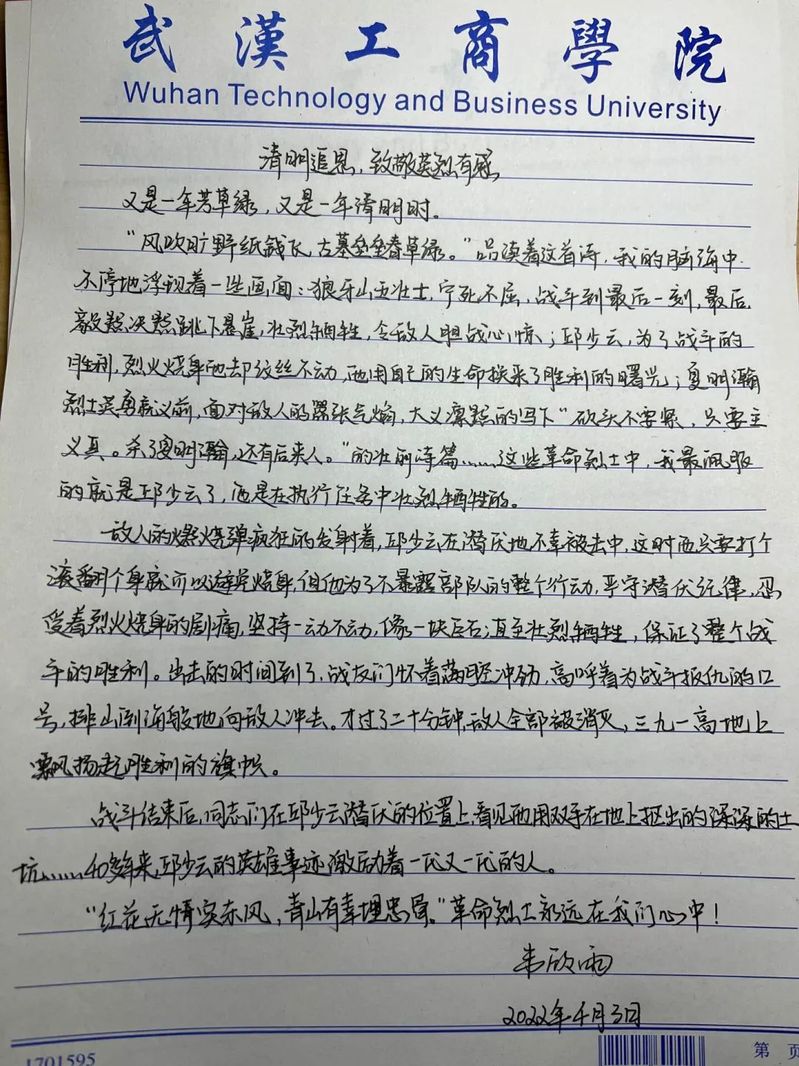 武漢工商學院
Wuhan Technology and Business University
清明追思，致敬英烈有感
又是一年芳草绿，又是一年清明时。
“风吹旷野纸钱飞，古墓垒垒春草绿。”品读着这首诗，我的脑海中
不停地浮现着一些画面：狼牙山五壮士，宁死不屈，战斗到最后一刻，最后
毅然决然跳下悬崖，壮烈牺牲，令敌人胆战心惊；邱少云，为了战斗的
胜利，烈火烧身他却纹丝不动，他用自己的生命换来了胜利的曙光；夏明瀚
烈士英勇就义前，面对敌人的嚣张气焰，大义凛然的写下“砍头不要紧，只要主
义真。杀了夏明瀚，还有后来人。”的壮丽诗篇……这些革命烈士中，我最佩服
的就是邱少云了，他是在执行任务中壮烈牺牲的。
敌人的爆烧弹疯狂的发射着，邱少云在潜伏地不幸被击中，这时而只要打个
滚翻个身就可以避免烧身，但他为了不暴露部队的整个行动，严守潜伏纪律，忍
受着烈火烧身的剧痛，坚持一动不动，像一块巨石；直至壮烈牺牲，保证了整个战
斗的胜利。出击的时间到了，战友们怀着满腔冲劲，高呼着为战斗报仇的口
号，排山倒海般地向敌人冲去。才过了二十分钟，敌人全部被消灭，三九一高地上
飘扬起胜利的旗帜。
战斗结束后，同志们在邱少云潜伏的位置上，看见他用双手在地上抠出的深深的土
坑……40多年来，邱少云的英雄事迹激励着一代又一代的人。
“红花无情实东风，青山有幸埋忠骨。”革命烈士永远在我们心中！
朱欣雨
2022年4月3日
1701595
第 页